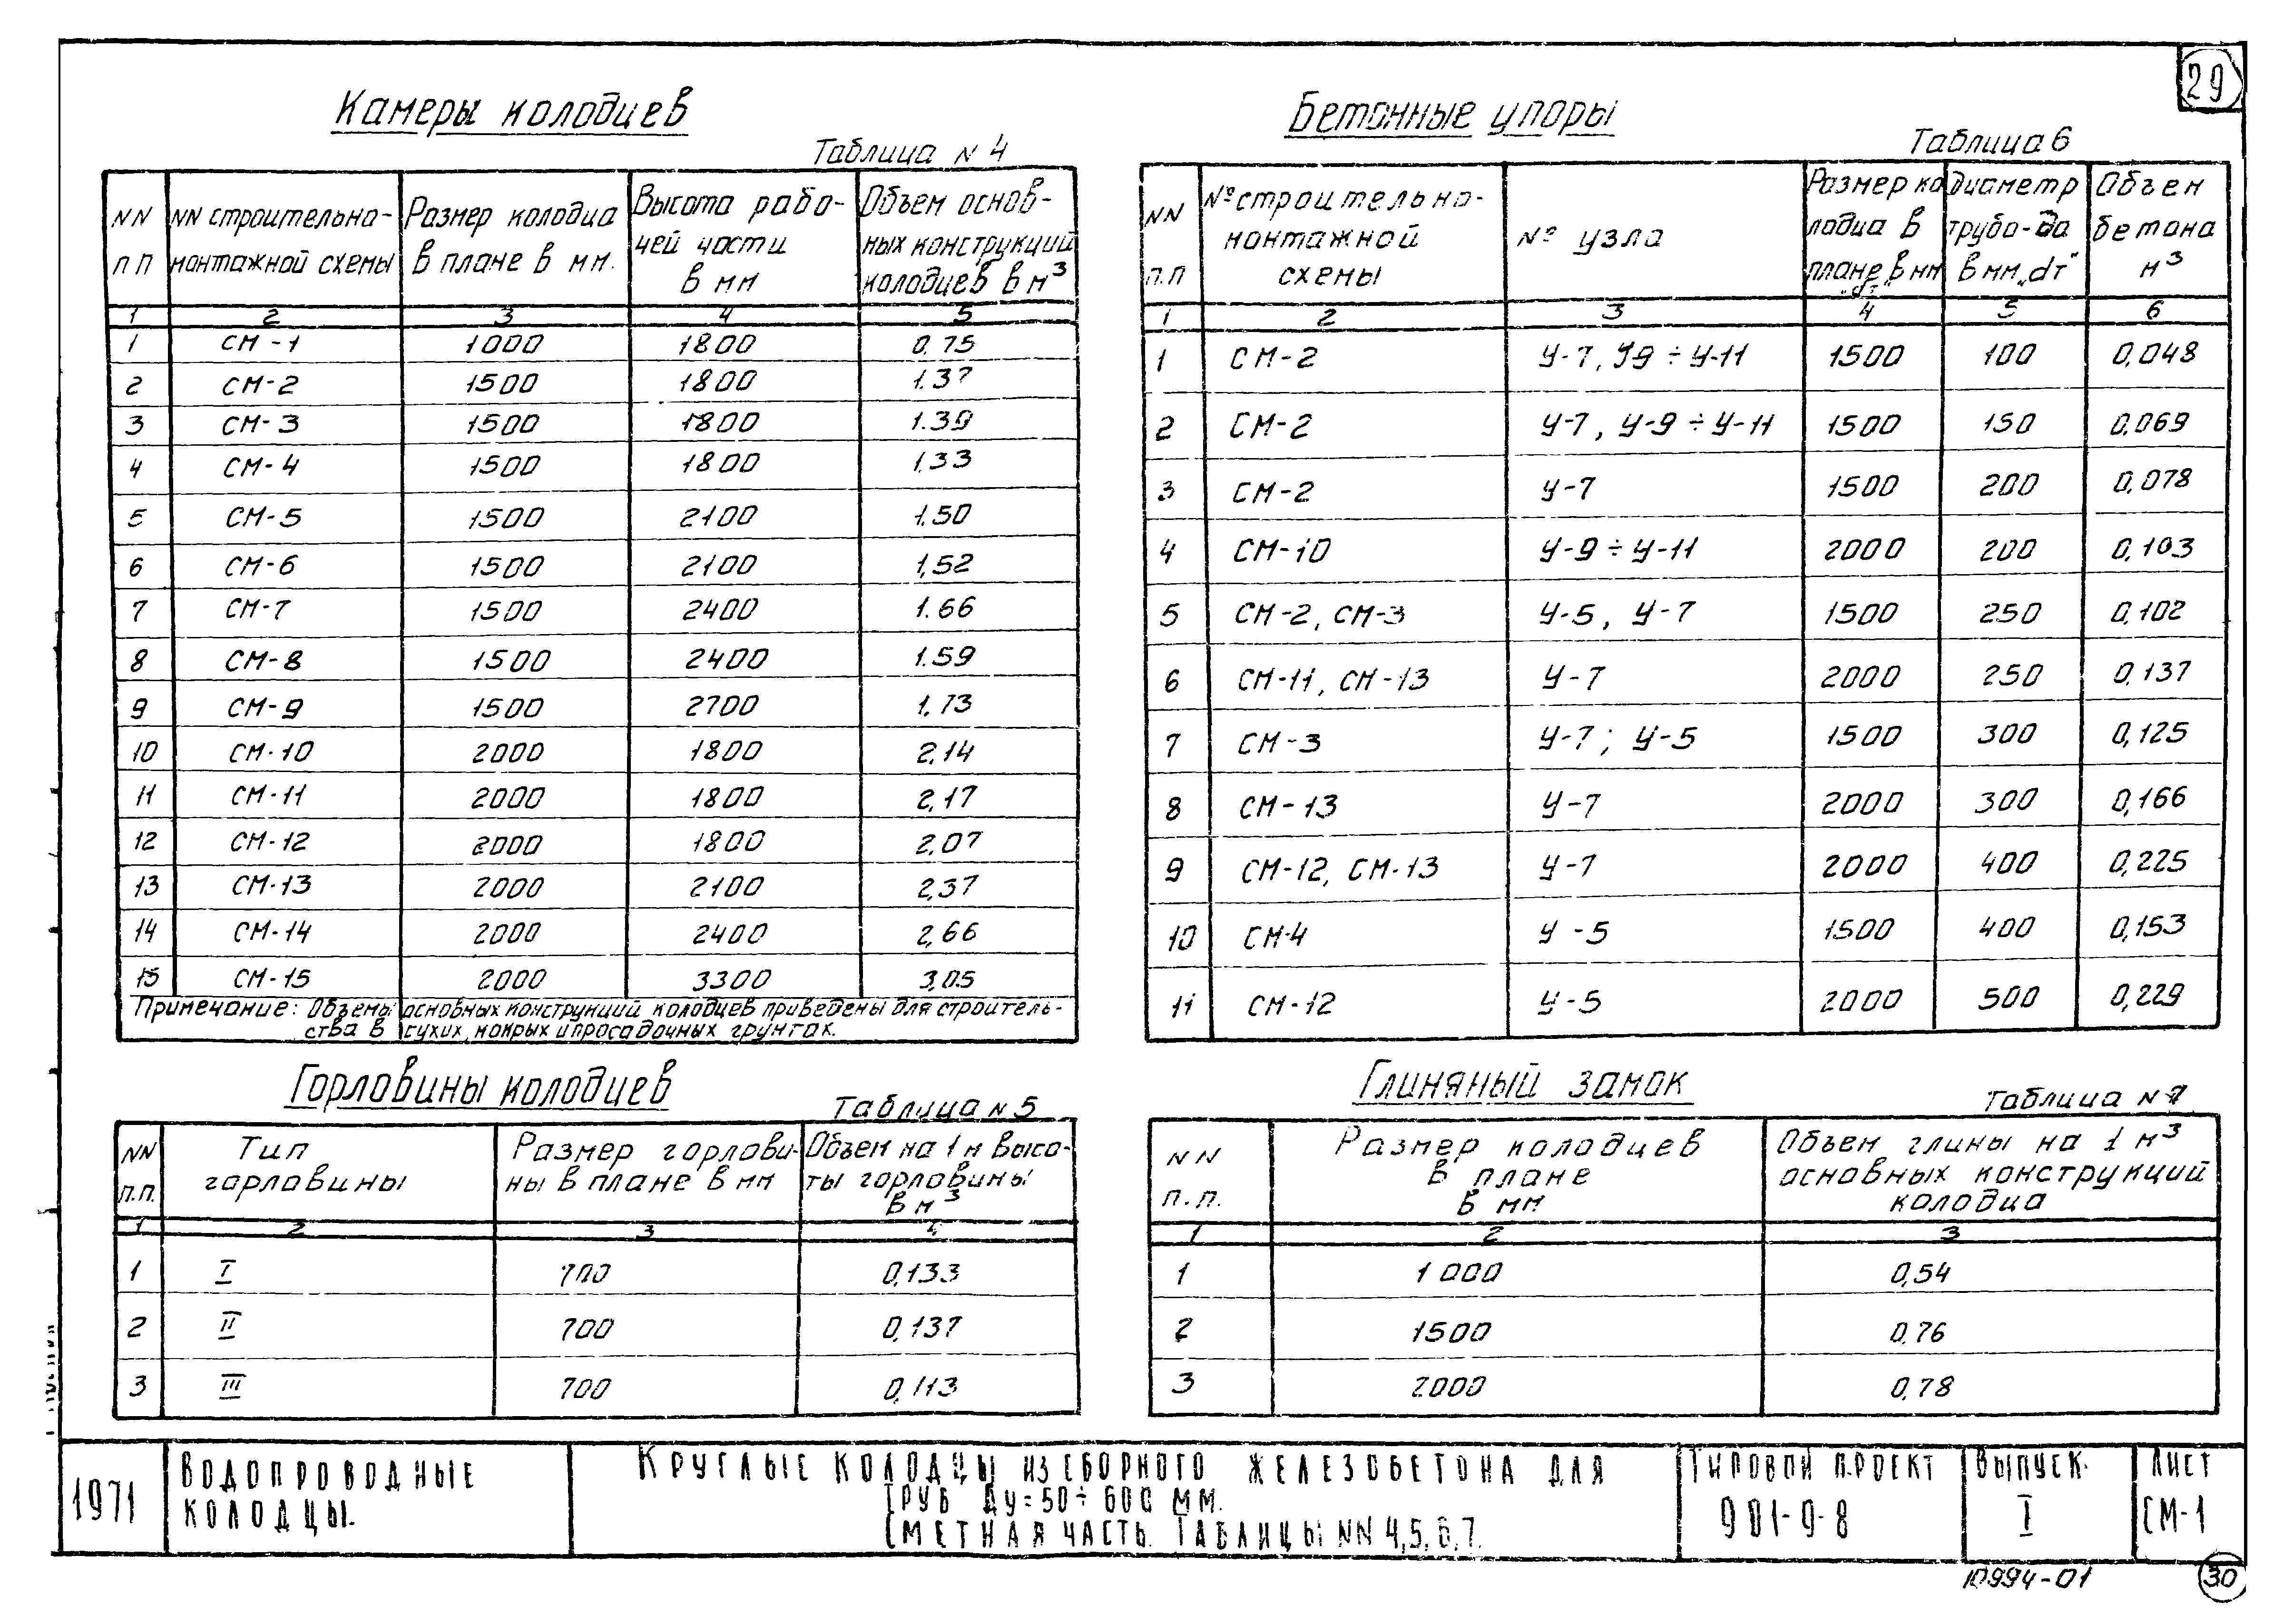 29
Камеры колодцев
Таблица N 4
NN п п | NN строительно-монтажной схемы | Размер колодца в плане в мм. | Высота рабочей части в мм | Объем основных конструкций колодцев в м³
1 | 2 | 3 | 4 | 5
1 | СМ-1 | 1000 | 1800 | 0.75
2 | СМ-2 | 1500 | 1800 | 1.37
3 | СМ-3 | 1500 | 1800 | 1.39
4 | СМ-4 | 1500 | 1800 | 1.33
5 | СМ-5 | 1500 | 2100 | 1.50
6 | СМ-6 | 1500 | 2100 | 1,52
7 | СМ-7 | 1500 | 2400 | 1.66
8 | СМ-8 | 1500 | 2400 | 1.59
9 | СМ-9 | 1500 | 2700 | 1.73
10 | СМ-10 | 2000 | 1800 | 2,14
11 | СМ-11 | 2000 | 1800 | 2,17
12 | СМ-12 | 2000 | 1800 | 2,07
13 | СМ-13 | 2000 | 2100 | 2,37
14 | СМ-14 | 2000 | 2400 | 2,66
15 | СМ-15 | 2000 | 3300 | 3,05
Примечание: Объемы основных конструкций колодцев приведены для строитель-
ства в сухих, мокрых и просадочных грунтах.
Бетонные упоры
Таблица 6
NN п.п | № строительно-монтажной схемы | № узла | Размер колодца в плане в мм | Диаметр трубо-да в мм „dт" | Объем бетона м³
1 | 2 | 3 | 4 | 5 | 6
1 | СМ-2 | У-7, У9 ÷ У-11 | 1500 | 100 | 0,048
2 | СМ-2 | У-7, У-9 ÷ У-11 | 1500 | 150 | 0,069
3 | СМ-2 | У-7 | 1500 | 200 | 0,078
4 | СМ-10 | У-9 ÷ У-11 | 2000 | 200 | 0,103
5 | СМ-2, СМ-3 | У-5, У-7 | 1500 | 250 | 0,102
6 | СМ-11, СМ-13 | У-7 | 2000 | 250 | 0,137
7 | СМ-3 | У-7; У-5 | 1500 | 300 | 0,125
8 | СМ-13 | У-7 | 2000 | 300 | 0,166
9 | СМ-12, СМ-13 | У-7 | 2000 | 400 | 0,225
10 | СМ-4 | У-5 | 1500 | 400 | 0,153
11 | СМ-12 | У-5 | 2000 | 500 | 0,229
Горловины колодцев
Таблица N 5
NN п.п. | Тип горловины | Размер горловины в плане в мм | Объем на 1 м высоты горловины в м³
1 | 2 | 3 | 4
1 | I | 700 | 0,133
2 | II | 700 | 0,137
3 | III | 700 | 0,113
Глиняный замок
Таблица N 7
NN п.п. | Размер колодцев в плане в мм | Объем глины на 1 м³ основных конструкций колодца
1 | 2 | 3
1 | 1000 | 0,54
2 | 1500 | 0,76
3 | 2000 | 0,78
1971
Водопроводные
колодцы.
Круглые колодцы из сборного железобетона для
труб Ду=50÷600 мм.
Сметная часть. Таблицы NN 4,5,6,7.
Типовой проект
901-9-8
Выпуск
I
Лист
СМ-1
10994-01
30